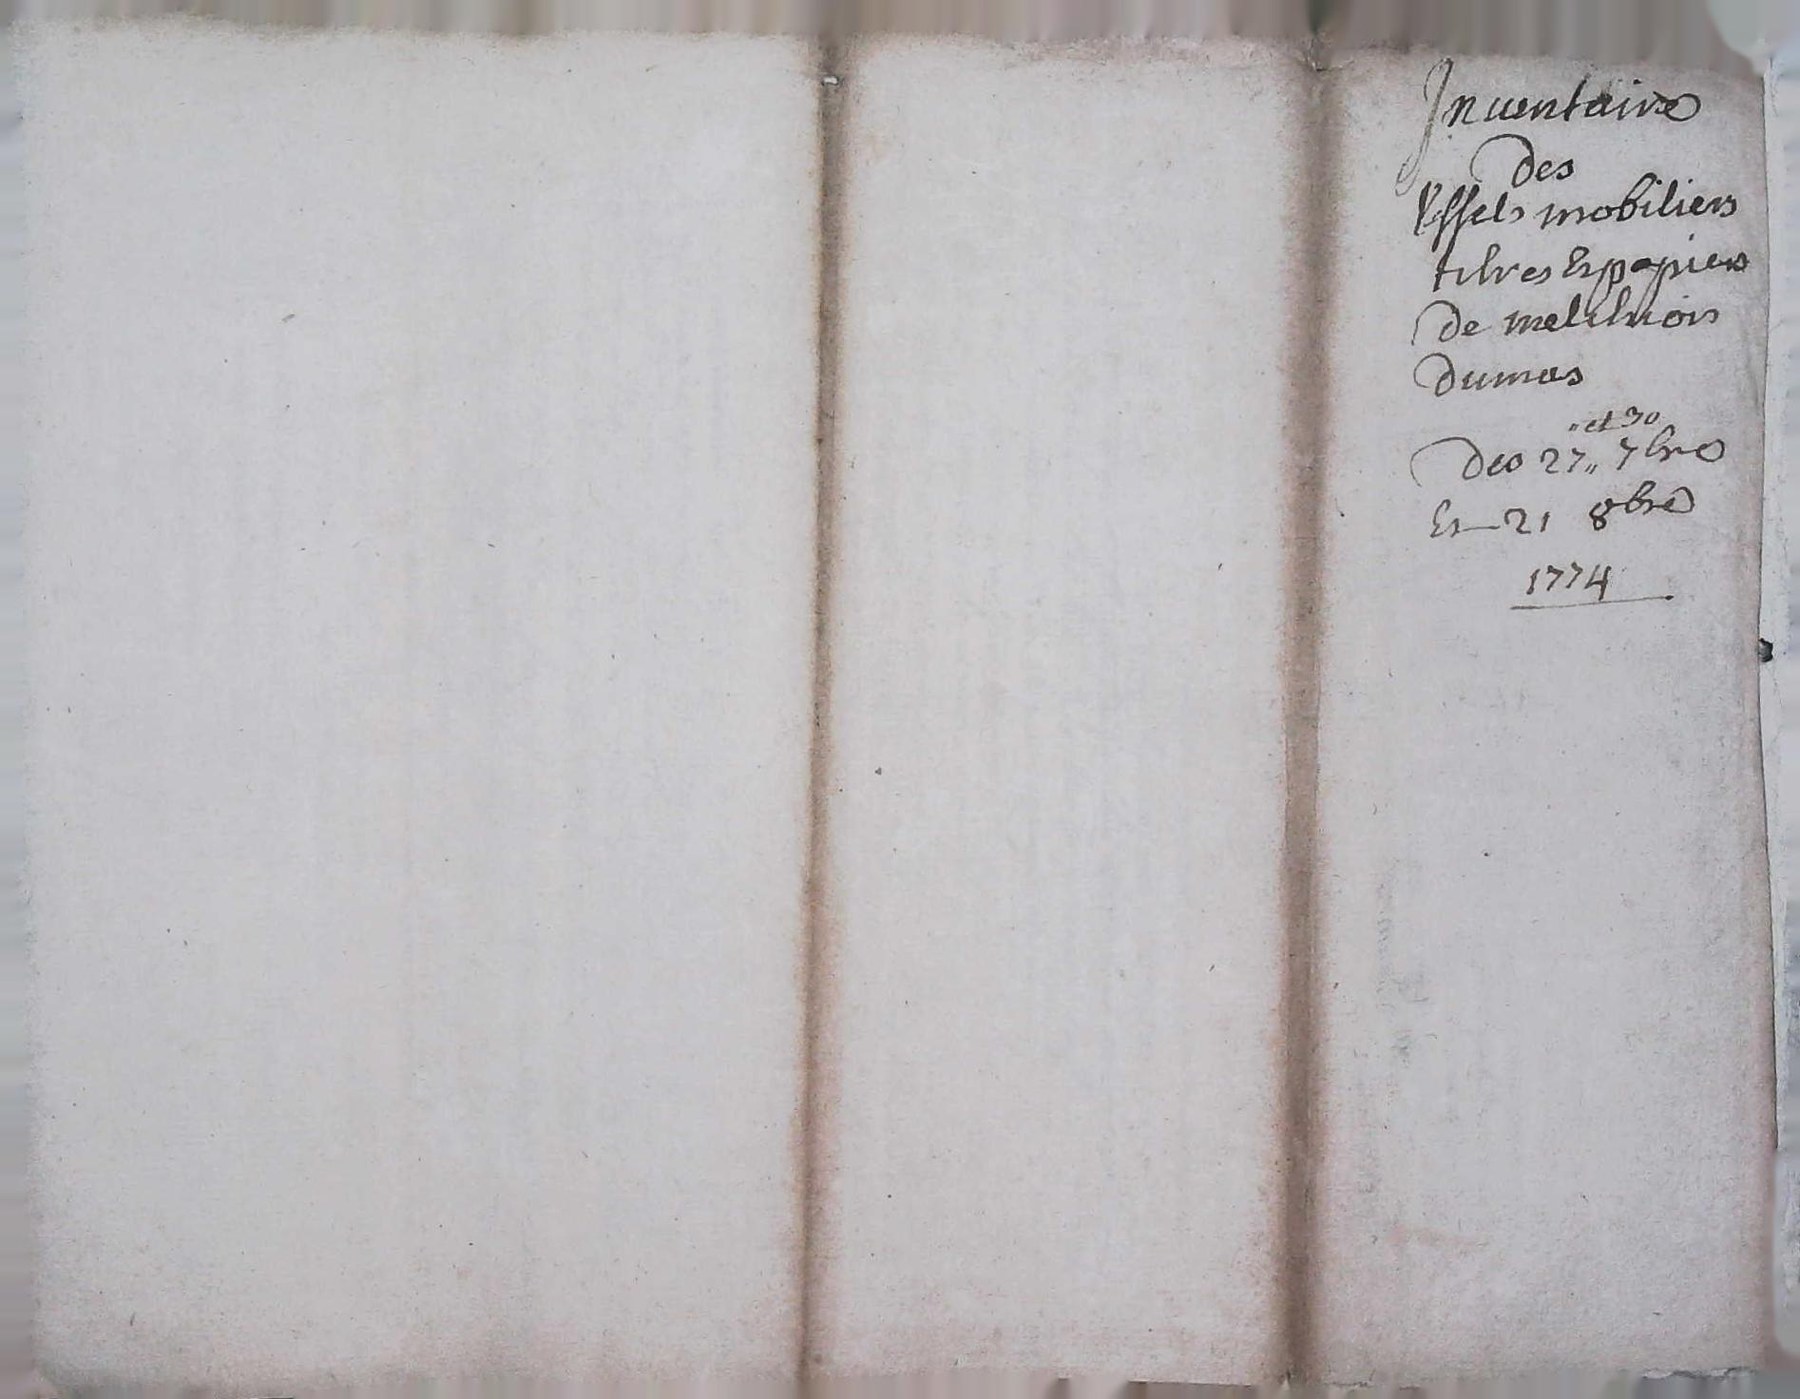 Inventaire
des
Effets mobiliers
titres Et papiers
de melchior
dumas
et 30
des 27 7bre
Et 21 8bre
1774